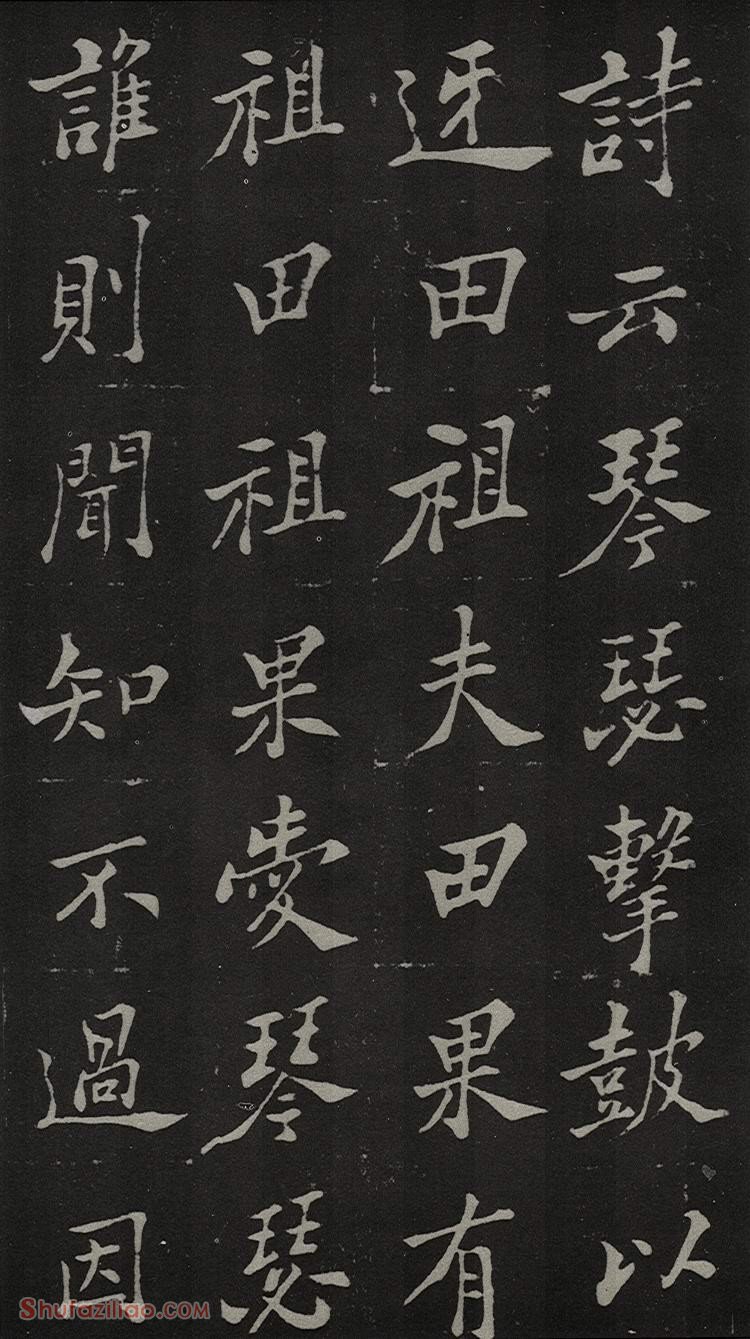 詩云琴瑟擊鼓以
迓田祖夫田果有
祖田祖果愛琴瑟
誰則聞知不過因
Shufaziliao.COM